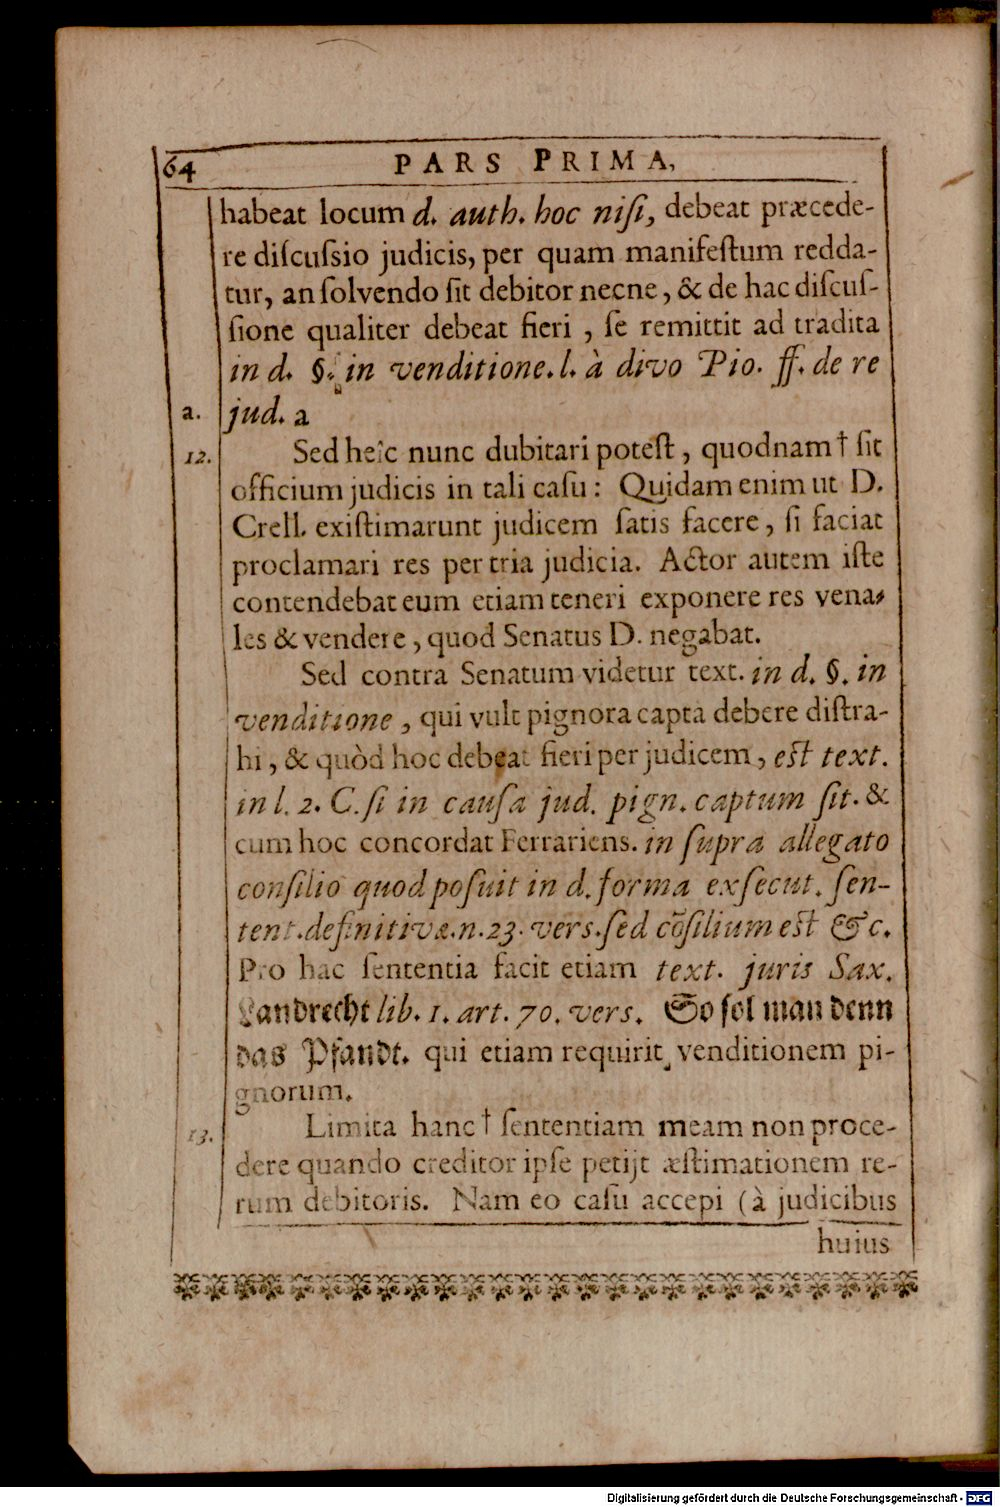 64 PARS PRIMA,
habeat locum d. auth. hoc niſi, debeat præcede-
re diſcuſsio judicis, per quam manifeſtum redda-
tur, an ſolvendo ſit debitor necne, & de hac diſcuſ-
ſione qualiter debeat fieri, ſe remittit ad tradita
in d. §. in venditione. l. à divo Pio. ff. de re
a. jud. a
12. Sed heîc nunc dubitari poteſt, quodnam † ſit
officium judicis in tali caſu: Quidam enim ut D.
Crell. exiſtimarunt judicem ſatis facere, ſi faciat
proclamari res per tria judicia. Actor autem iſte
contendebat eum etiam teneri exponere res vena-
les & vendere, quod Senatus D. negabat.
Sed contra Senatum videtur text. in d. §. in
venditione, qui vult pignora capta debere diſtra-
hi, & quòd hoc debeat fieri per judicem, eſt text.
in l. 2. C. ſi in cauſa jud. pign. captum ſit. &
cum hoc concordat Ferrariens. in ſupra allegato
conſilio quod poſuit in d. forma exſecut. ſen-
tent. definitivæ. n. 23. verſ. ſed cõſilium eſt &c.
Pro hac ſententia facit etiam text. juris Sax.
Landrecht lib. 1. art. 70. verſ. So ſol man denn
das Pfandt. qui etiam requirit venditionem pi-
gnorum.
13. Limita hanc † ſententiam meam non proce-
dere quando creditor ipſe petijt æſtimationem re-
rum debitoris. Nam eo caſu accepi (à judicibus
huius
Digitalisierung gefördert durch die Deutsche Forschungsgemeinschaft - DFG